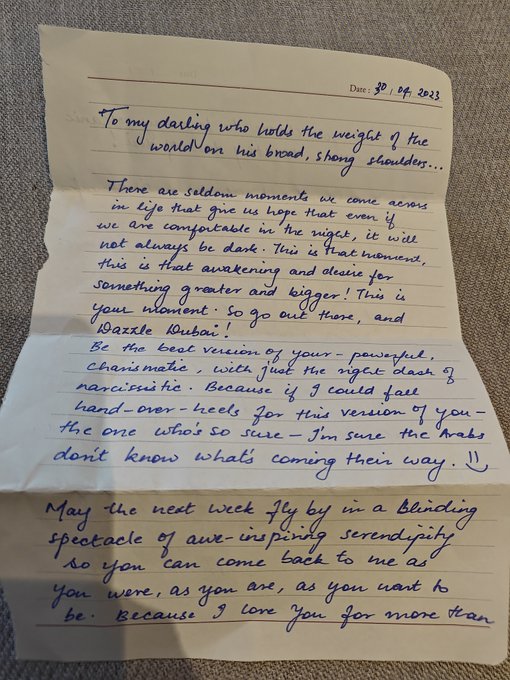 Date: 30/04/2023
To my darling who holds the weight of the
world on his broad, strong shoulders...
There are seldom moments we come across
in life that give us hope that even if
we are comfortable in the night, it will
not always be dark. This is that moment,
this is that awakening and desire for
something greater and bigger! This is
your moment. So go out there, and
Dazzle Dubai!
Be the best version of your - powerful,
charismatic, with just the right dash of
narcissistic. Because if I could fall
hand-over-heels for this version of you -
the one who's so sure - I'm sure the Arabs
don't know what's coming their way. :)
May the next week fly by in a Blinding
spectacle of awe-inspiring serendipity
so you can come back to me as
you were, as you are, as you want to
be. Because I love You for more than